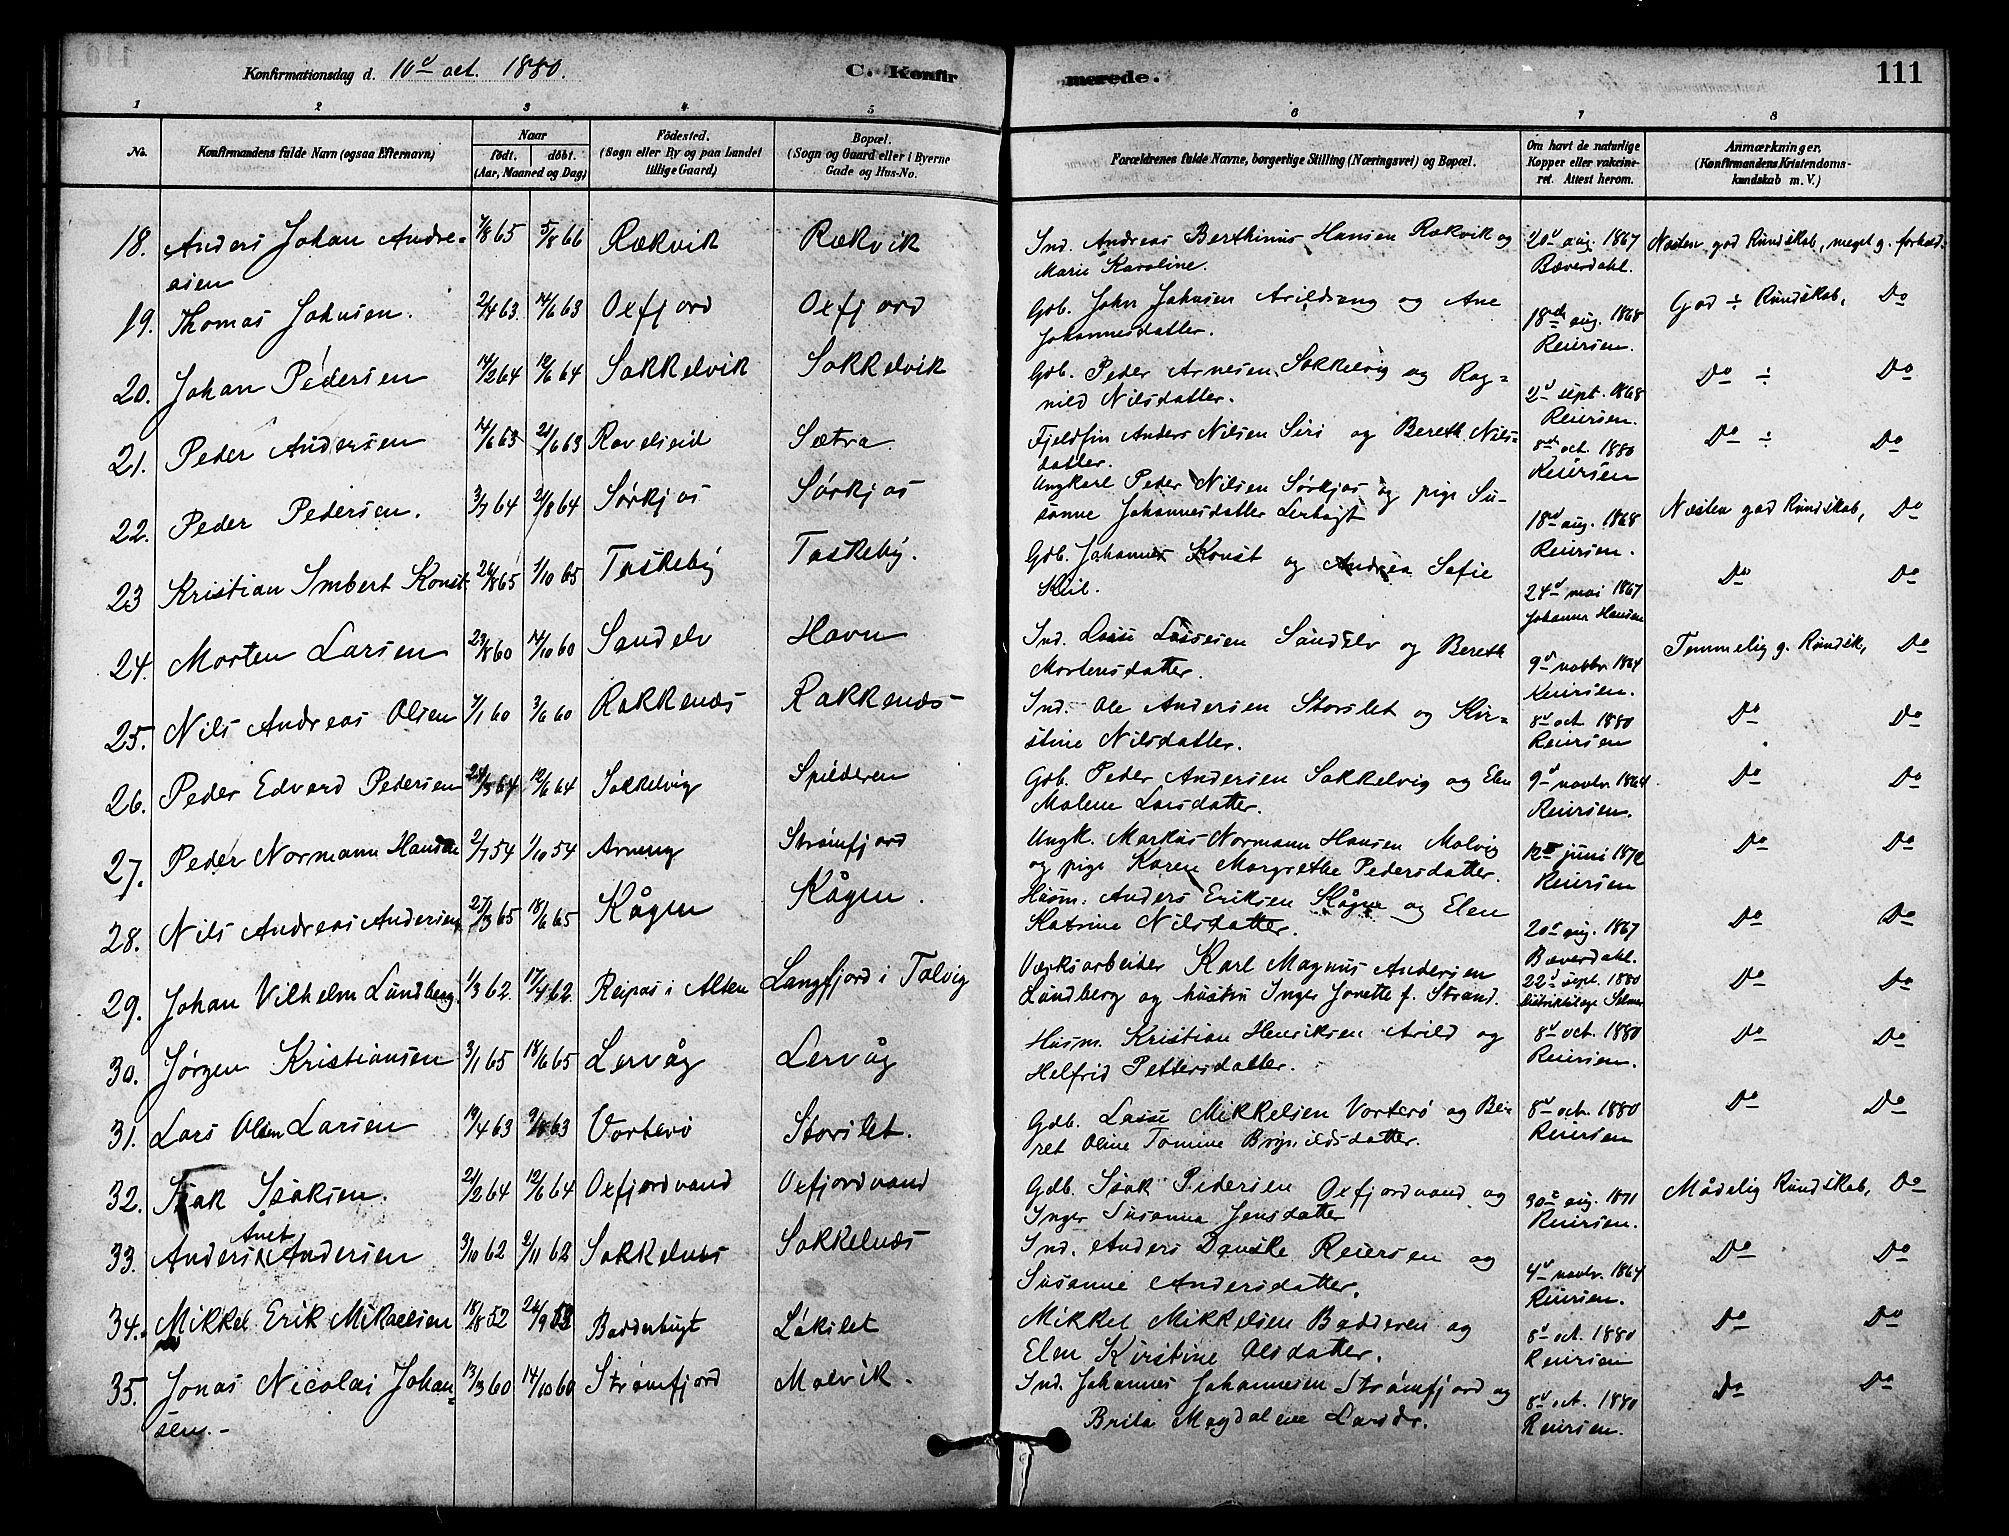 Konfirmationsdag d. 10d oct. 1880.
C. Konfirmerede.
111
1 2 3 4 5 6 7 8
No.
Konfirmandens fulde Navn (ogsaa Efternavn)
Naar
født. døbt.
(Aar, Maaned og Dag)
Fødested.
(Sogn eller By og paa Landet
tillige Gaard)
Bopæl.
(Sogn og Gaard eller i Byerne
Gade og Hus-No.
Forældrenes fulde Navne, borgerlige Stilling (Næringsvei) og Bopæl.
Om havt de naturlige
Kopper eller vakcine-
ret. Attest herom.
Anmærkninger.
(Konfirmandens Kristendoms-
kundskab m. V.)
18. Anders Johan Andre- 7/8 65 5/8 66 Rækvik Rækvik Ind. Andreas Berthinus Hansen Rækvik og 20d aug. 1867 Næsten god Kundskab, meget g. forhold
sien Marie Karoline. Bæverdahl.
19. Thomas Johnsen. 2/4 63 14/6 63 Oxfjord Oxfjord Gdb. John Johnsen Arildvang og Ane 18de aug. 1868 God ÷ Kundskab, Do
Johannesdatter. Reiersen.
20. Johan Pedersen 14/2 64 12/6 64 Sokkelvik Sokkelvik Gdb. Peder Arnesen Sokkelvig og Rag- 2d sept. 1868 Do ÷ Do
nild Nilsdatter. Reiersen.
21. Peder Andersen 14/6 63 21/6 63 Ravelseid Sætra Fjeldfin Anders Nilsen Siri og Bereth Nils- 8de oct. 1880 Do ÷ Do
datter. Reiersen
22. Peder Pedersen. 3/7 64 21/8 64 Sørkjos Sørkjos Ungkarl Peder Nilsen Sørkjos og pige Su- 18d aug. 1868 Næsten god Kundskab, Do
sanne Johannesdatter Lerbugt Reiersen.
23 Kristian Imbert Konst 26/8 65 1/10 65 Taskeby Taskeby. Gdb. Johannes Konst og Andrea Sofie 24d mai 1867 Do Do
Kiil. Johanna Hansen
24. Morten Larsen 23/8 60 14/10 60 Sandelv Havn Ind. Lasse Lassesen Sandelv og Bereth 9d novbr 1864 Temmelig g. Kundsk, Do
Mortensdatter. Reiersen.
25. Nils Andreas Olsen 7/1 60 3/6 60 Rakkenæs Rakkenæs Ind. Ole Andersen Storslet og Kir- 8d oct. 1880 Do Do
stine Nilsdatter. Reiersen
26. Peder Edvard Pedersen 24/3 64 12/6 64 Sokkelvig Spilderen Gdb. Peder Andersen Sokkelvig og Elen 9d novbr. 1864 Do Do
Malene Larsdatter. Reiersen.
27. Peder Normann Hansen 2/7 54 1/10 54 Arnøy Strømfjord Ungk. Markus Normann Hansen Molvig 12te juni 1872 Do Do
og pige Karen Margrethe Pedersdatter. Reiersen
28. Nils Andreas Andersen 27/3 65 18/6 65 Kågen Kågen. Husm. Anders Eriksen Kågen og Elen 20d aug. 1867 Do Do
Katrine Nilsdatter. Bæverdahl.
29. Johan Vilhelm Lundberg. 1/3 62. 17/4 62. Raipas i Alten Langfjord i Talvig Værksarbeider Karl Magnus Andersen 22d sept. 1880 Do Do
Lundberg og hustru Inger Jonette f. Strand. Distriktslæge Selmer
30. Jørgen Kristiansen 3/1 65 18/6 65 Lervåg Lervåg Husm. Kristian Henriksen Arild og 8d oct. 1880 Do Do
Helfrid Pettersdatter. Reiersen.
31. Lars Olsen Larsen 19/4 63 9/8 63 Vorterø Storslet. Gdb. Lasse Mikkelsen Vorterø og Be- 8d oct. 1880 Do Do
ret Oline Tomine Brynildsdatter. Reiersen
32. Isak Isaksen. 21/2 64 12/6 64 Oxfjordvand Oxfjordvand Gdb. Isak Pedersen Oxfjordvand og 30te aug. 1871 Mådelig Kundskab, Do
Inger Susanna Jensdatter Reiersen.
33. Anders Anet Andersen 3/10 62 2/11 62 Sokkelnæs Sokkelnæs Ind. Anders Danske Reiersen og 4d novbr. 1864 Do Do
Susanne Andersdatter. Reiersen.
34. Mikkel Erik Mikaelsen 18/8 52 26/9 52 Badderbugt Låkslet Mikkel Mikkelsen Badderen og 8d oct. 1880 Do Do
Elen Kirstine Olsdatter. Reiersen
35. Jonas Nicolai Johan- 13/3 60 14/10 60 Strømfjord Molvik. Ind. Johannes Johannesen Strømfjord og 8d oct. 1880 Do Do
sen.- Brita Magdalene Larsdr. Reiersen.